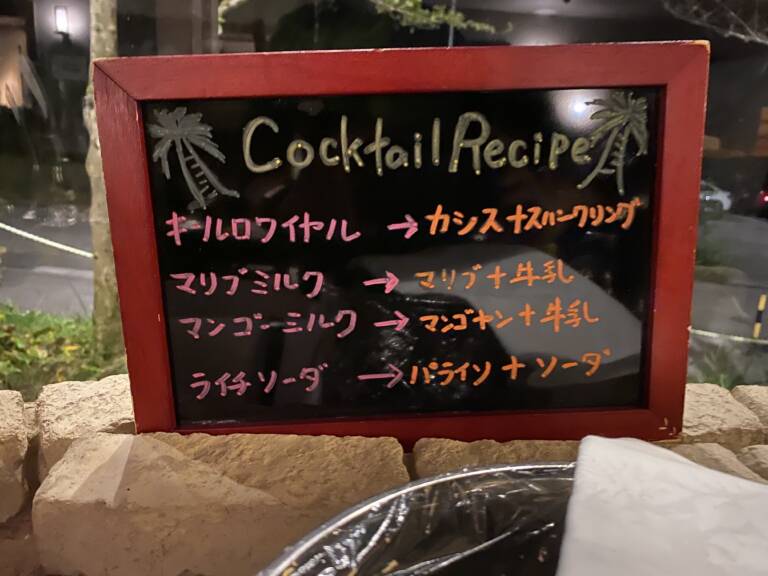 Cocktail Recipe
キールロワイヤル → カシス+スパークリング
マリブミルク → マリブ+牛乳
マンゴーミルク → マンゴヤン+牛乳
ライチソーダ → パライソ+ソーダ